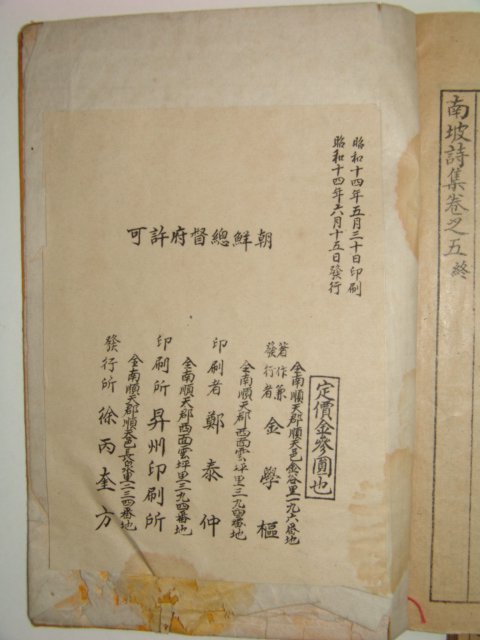 南坡詩集卷之五 終
昭和十四年五月三十日印刷
昭和十四年六月十五日發行
朝鮮總督府許可
定價金參圓也
全南順天郡順天邑金谷里一九六番地
著作兼
發行者 金學樞
全南順天郡西面雲坪里三九四番地
印刷者 鄭泰仲
全南順天郡西面雲坪里三九四番地
印刷所 昇州印刷所
全南順天郡順天邑長泉里二三四番地
發行所 徐丙奎方